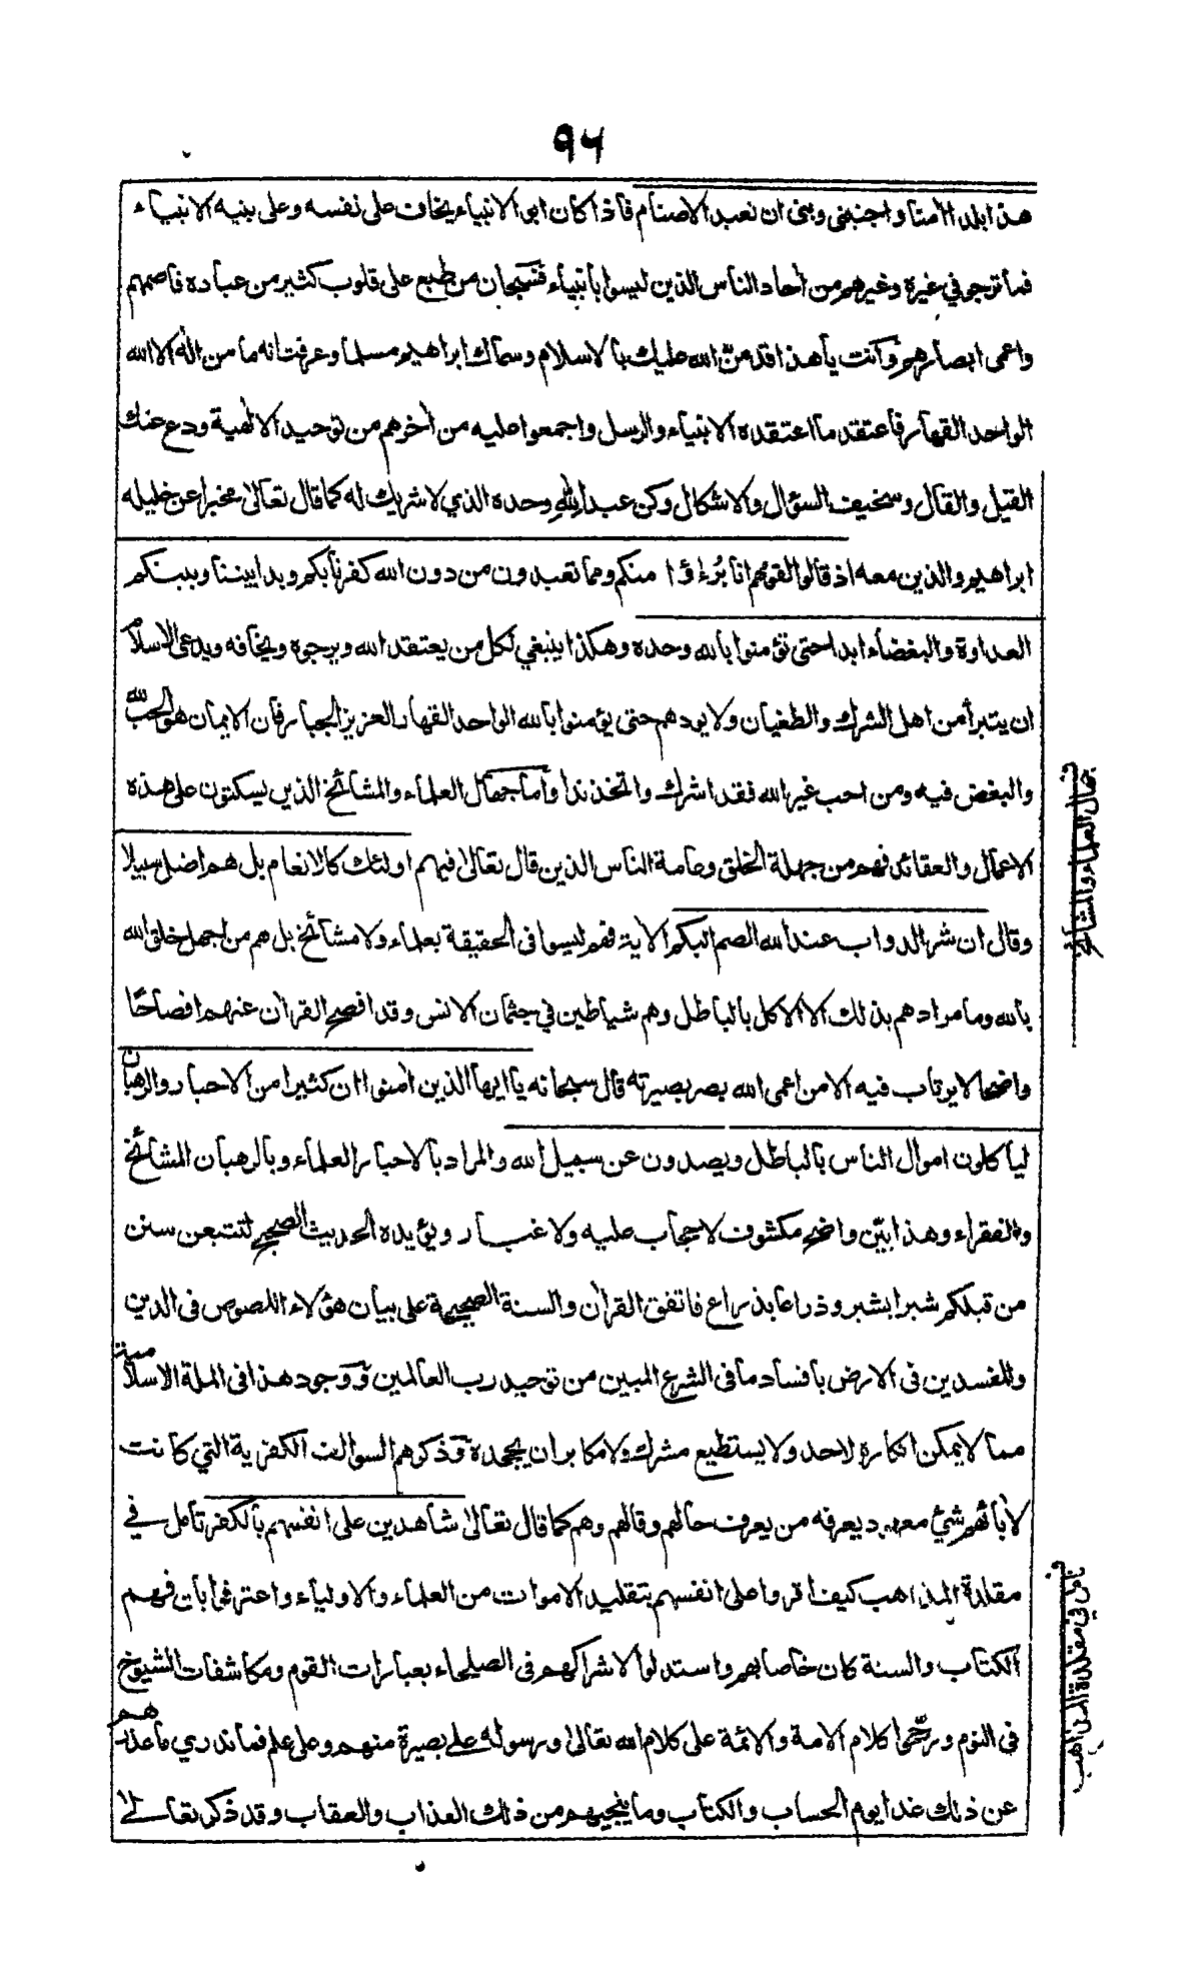 ٩٤
هذا البلد آمنا واجنبني وبني ان نعبد الاصنام فاذا كان ابو الانبياء يخاف على نفسه وعلى بنيه الانبياء
فما ترجو في غيره وغيرهم من آحاد الناس الذين ليسوا بأنبياء فسبحان من طبع على قلوب كثير من عباده فاصمهم
واعمى ابصارهم وأنت يا هذا قد منّ الله عليك بالاسلام وسماك ابراهيم مسلما وعرفت انه ما من اله الا الله
الواحد القهار فاعتقد ما اعتقده الانبياء والرسل واجمعوا عليه من آخرهم من توحيد الالهية ودع عنك
القيل والقال وسخيف السؤال والاشكال وكن عبدا لله وحده الذي لا شريك له كما قال تعالى مخبرا عن خليله
ابراهيم والذين معه اذ قالوا لقومهم انا بُرءؤا منكم ومما تعبدون من دون الله كفرنا بكم وبدا بيننا وبينكم
العداوة والبغضاء ابدا حتى تؤمنوا بالله وحده وهكذا ينبغي لكل من يعتقد الله ويرجوه ويخافه ويدعى الاسلام
ان يتبرأ من اهل الشرك والطغيان ولا يودهم حتى يؤمنوا بالله الواحد القهار العزيز الجبار فان الايمان هو الحب لله
والبغض فيه ومن احب غير الله فقد اشرك واتخذ ندا وأما جهال العلماء والمشائخ الذين يسكتون على هذه
الاعمال والعقائد فهم من جهلة الخلق وعامة الناس الذين قال تعالى فيهم اولئك كالانعام بل هم اضل سبيلا
وقال ان شر الدواب عند الله الصم البكم الاية فهم ليسوا في الحقيقة بعلماء ولا مشائخ بل هم من اجهل خلق الله
بالله وما مرادهم بذلك الا الاكل بالباطل وهم شياطين في جثمان الانس وقد افصح القرآن عنهم افصاحًا
واضحا لا يرتاب فيه الا من اعمى الله بصر بصيرته قال سبحانه يا ايها الذين آمنوا ان كثيرا من الاحبار والرهبان
ليأكلون اموال الناس بالباطل ويصدون عن سبيل الله والمراد بالاحبار العلماء وبالرهبان المشائخ
والفقراء وهذا بيّن واضح مكشوف لا حجاب عليه ولا غبار ويؤيده الحديث الصحيح لتتبعن سنن
من قبلكم شبرا بشبر وذراعا بذراع فاتفق القرآن والسنة الصحيحة على بيان هؤلاء اللصوص في الدين
والمفسدين في الارض بافساد ما في الشرع المبين من توحيد رب العالمين ووجود هذا في الملة الاسلامية
مما لا يمكن انكاره لاحد ولا يستطيع مشرك ولا مكابر ان يجحده وذكرهم السوالف الكفرية التي كانت
لآبائهم شيئ معهود يعرفه من يعرف حالهم وقالهم وهم كما قال تعالى شاهدين على انفسهم بالكفر تأمل في
مقلدة المذاهب كيف أقروا على انفسهم بتقليد الاموات من العلماء والاولياء واعترفوا بأن فهم
الكتاب والسنة كان خاصا بهم واستدلوا لاشراكهم في الصلحاء بعبارات القوم ومكاشفات الشيوخ
في النوم ورجّحوا كلام الامة والائمة على كلام الله تعالى ورسوله على بصيرة منهم وعلى علم فما ندري ما عذرهم
عن ذلك غدا يوم الحساب والكتاب وما ينجيهم من ذلك العذاب والعقاب وقد ذكر تعالى
جهال العلماء والمشائخ
تأمل في مقلدة المذاهب